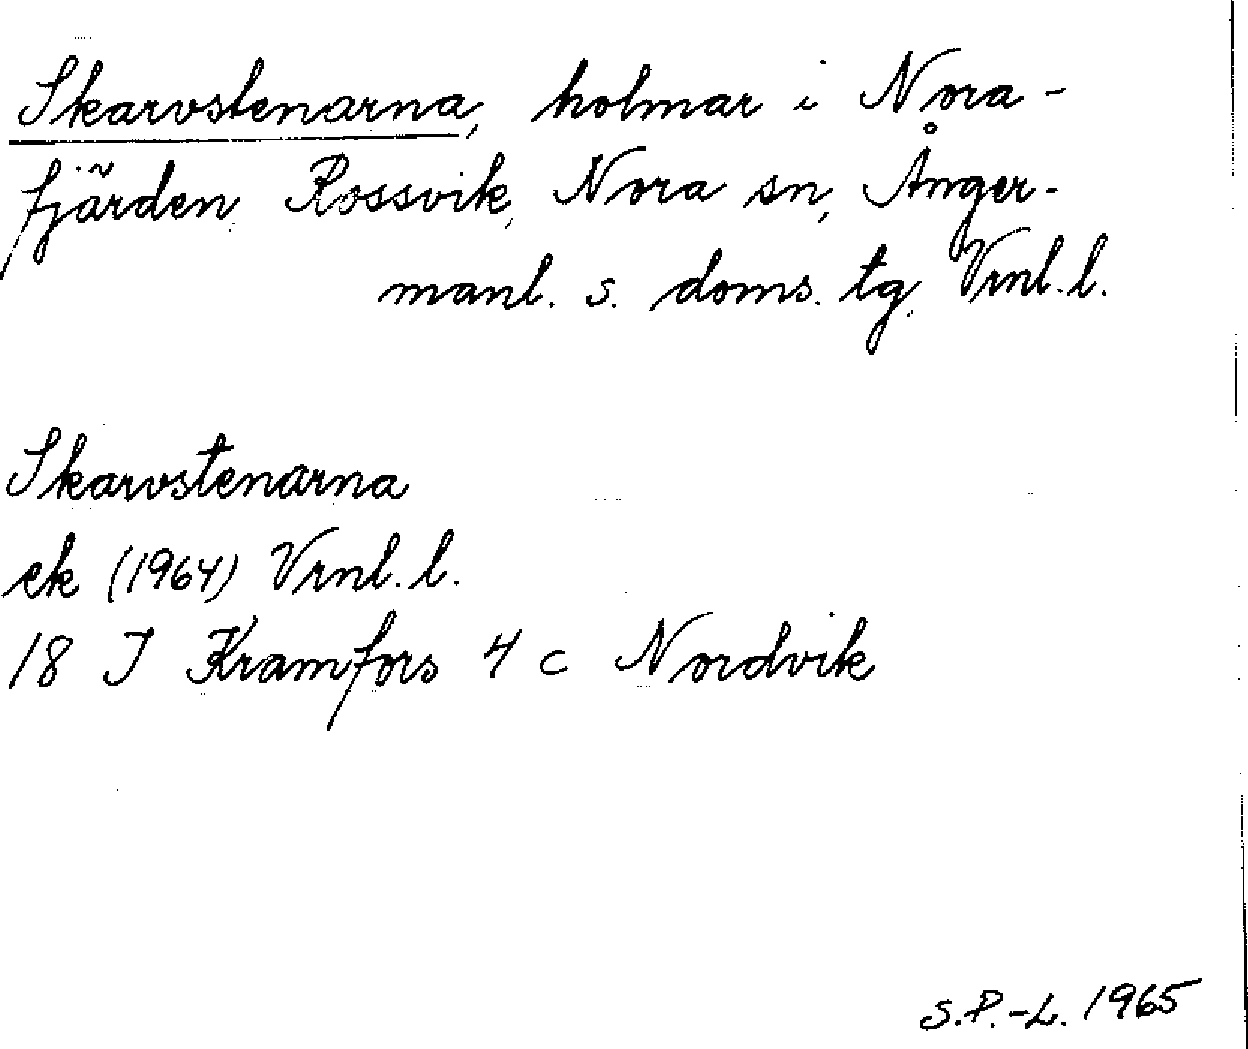 Skarvstenarna, holmar i Nora-
fjärden, Rossvik, Nora sn, Ånger-
manl. s. doms. tg, Vrnl. l.
Skarvstenarna
ek (1964) Vrnl. l.
18 I Kramfors 4 c Nordvik
S.P.-L. 1965